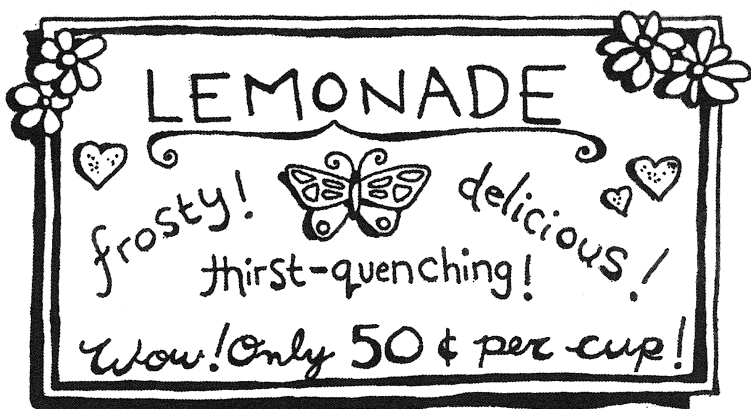 LEMONADE
frosty! delicious!
thirst-quenching!
Wow! Only 50 ¢ per cup!